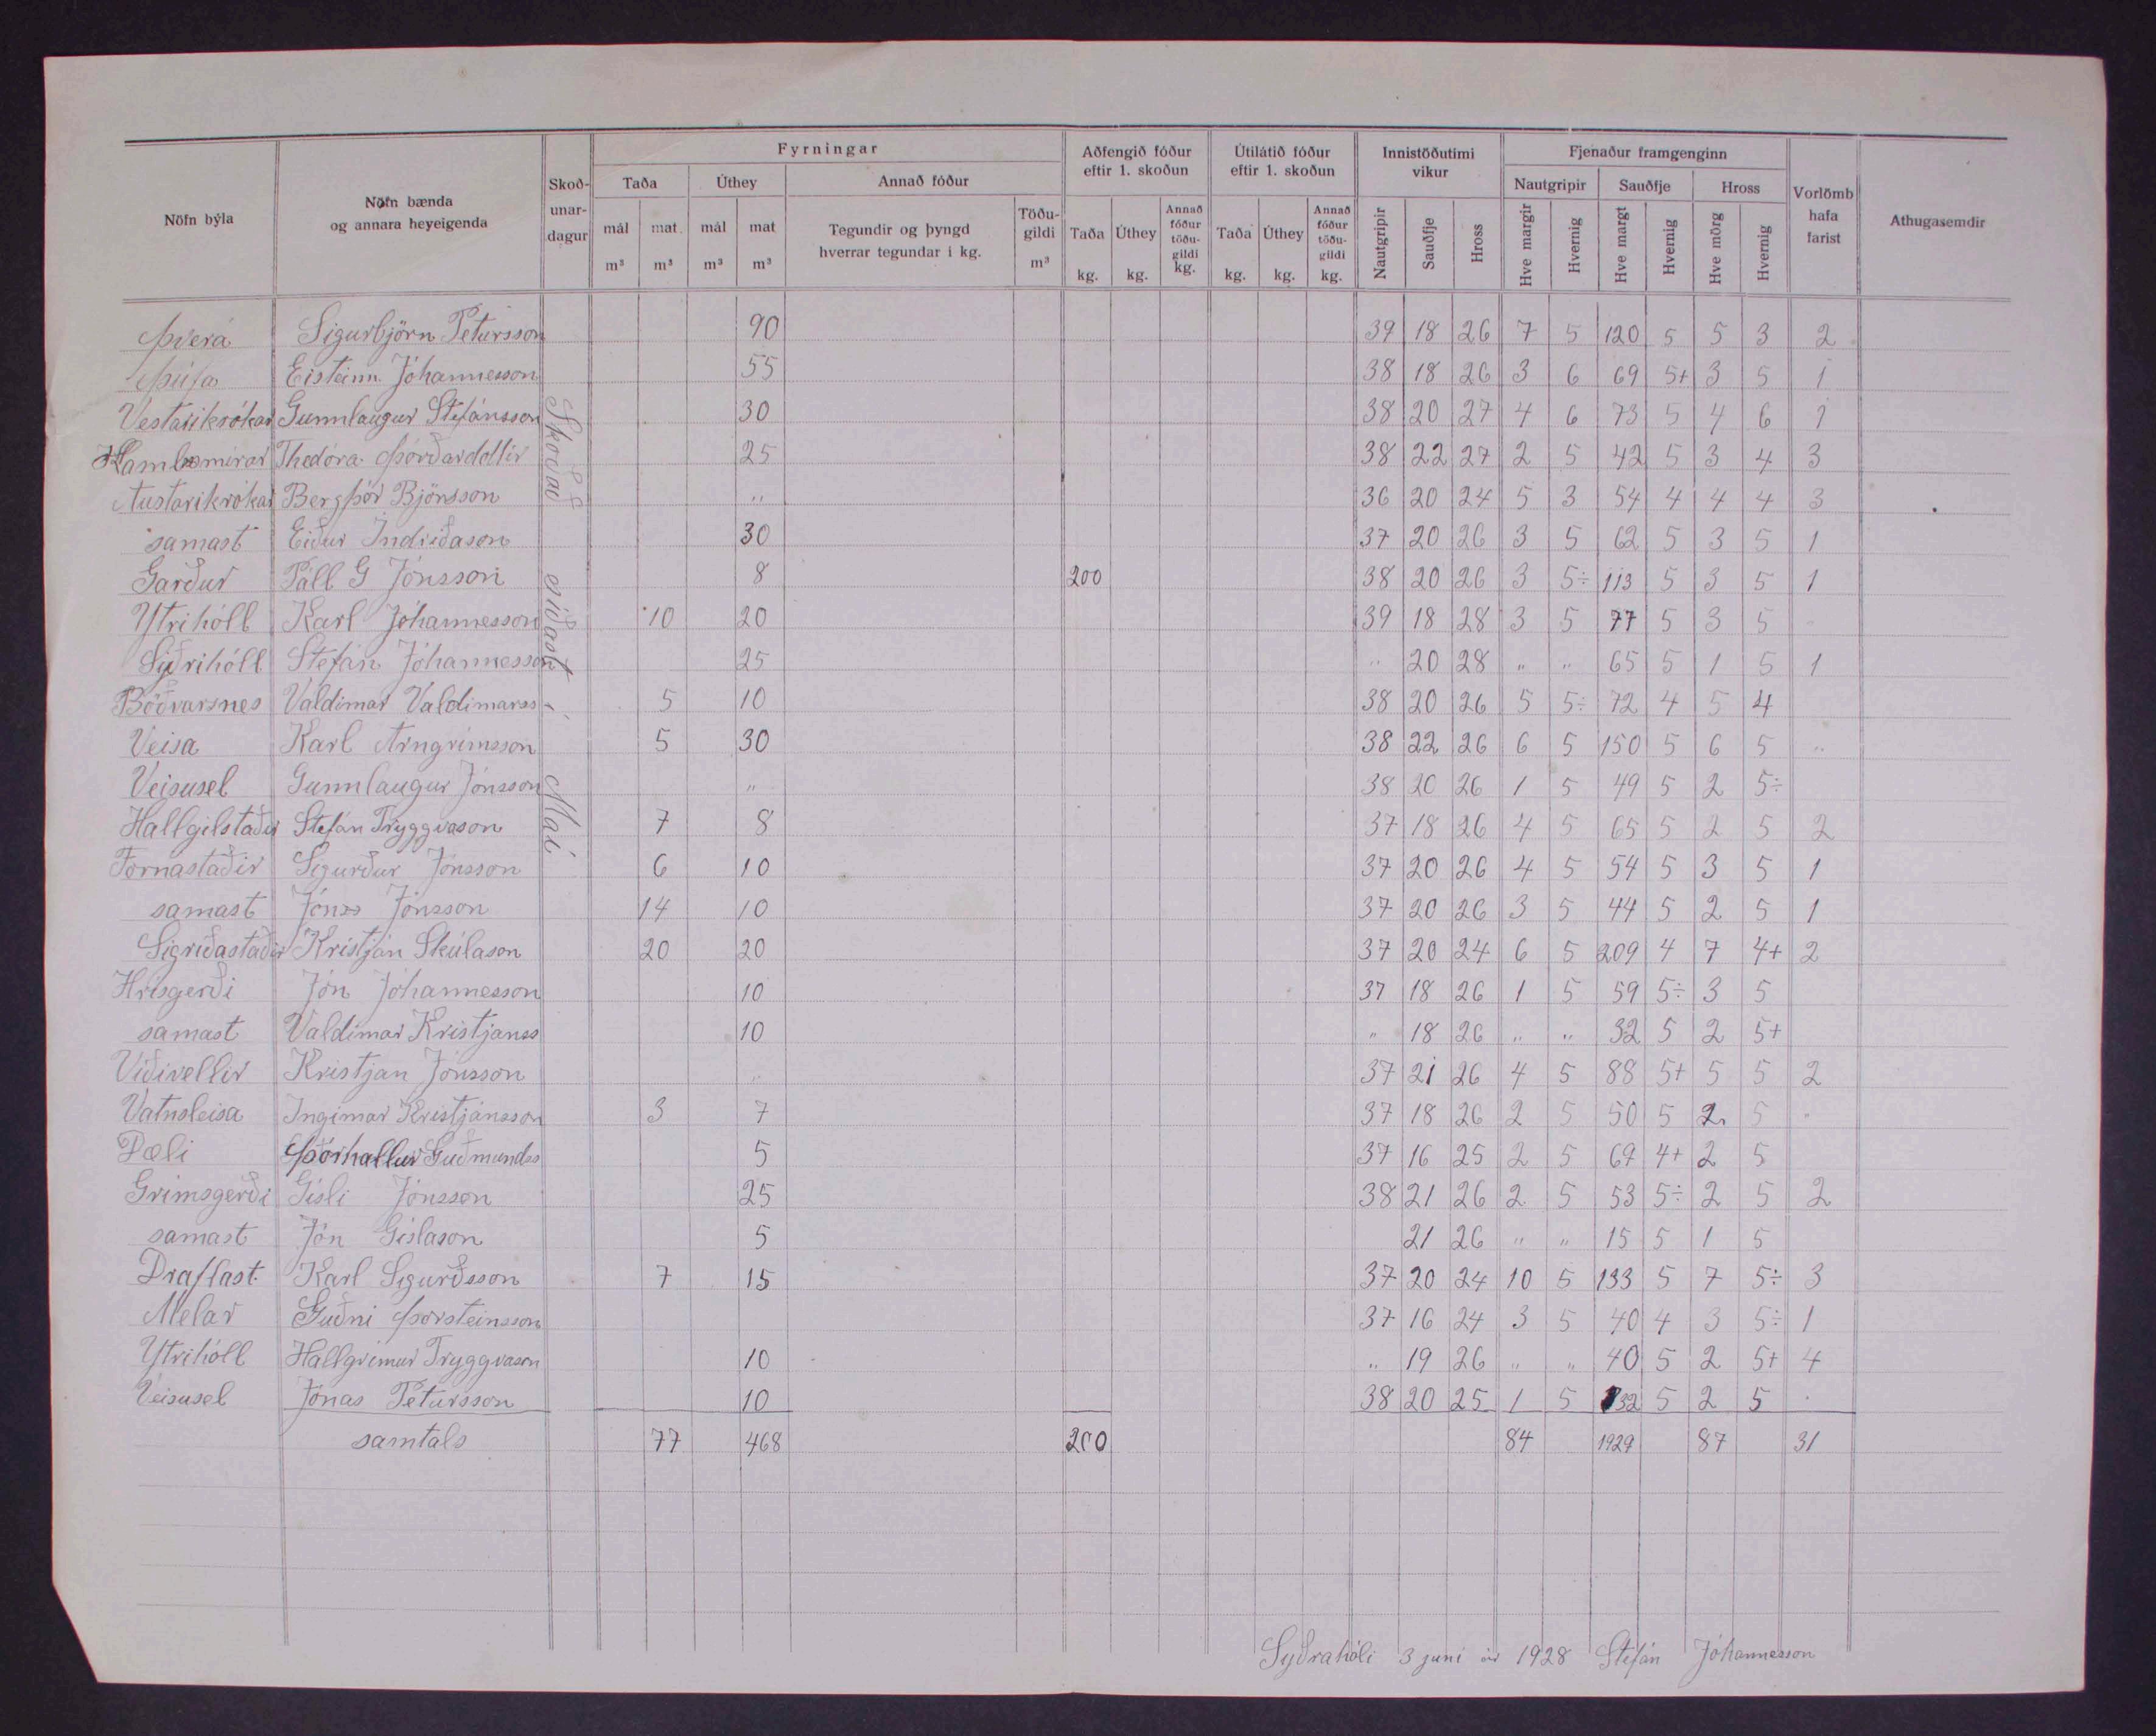 Fyrningar
Aðfengið fóður eftir 1. skoðun
Útilátið fóður eftir 1. skoðun
Innistöðutími vikur
Fjenaður framgenginn
Nöfn býla
Nöfn bænda og annara heyeigenda
Skoð-unar-dagur
Taða
Úthey
Annað fóður
Nautgripir
Sauðfje
Hross
Vorlömb hafa farist
Athugasemdir
mál m³
mat m³
mál m³
mat m³
Tegundir og þyngd hverrar tegundar í kg.
Töðu-gildi m³
Taða kg.
Úthey kg.
Annað fóður töðu-gildi kg.
Taða kg.
Úthey kg.
Annað fóður töðu-gildi kg.
Nautgripir
Sauðfje
Hross
Hve margir
Hvernig
Hve margt
Hvernig
Hve mörg
Hvernig
Skoðað síðast í Maí
Þverá Sigurbjörn Petursson 90 39 18 26 7 5 120 5 5 3 2
Þúfa Eisteinn Jóhannesson 55 38 18 26 3 6 69 5+ 3 5 1
Vestarikrókar Gunnlaugur Stefánsson 30 38 20 27 4 6 73 5 4 6 1
Kambsmírar Thedóra Þórðardóttir 25 38 22 27 2 5 42 5 3 4 3
Austarikrókar Bergþór Björnsson " 36 20 24 5 3 54 4 4 4 3
samast Eiður Indriðason 30 37 20 26 3 5 62 5 3 5 1
Garður Páll G Jónsson 8 200 38 20 26 3 5÷ 113 5 3 5 1
Ytrihóll Karl Jóhannesson 10 20 39 18 28 3 5 77 5 3 5
Syðrihóll Stefán Jóhannesson 25 " 20 28 " " 65 5 1 5 1
Böðvarsnes Valdimar Valdimarss 5 10 38 20 26 5 5÷ 72 4 5 4
Veisa Karl Arngrímsson 5 30 38 22 26 6 5 150 5 6 5 "
Veisusel Gunnlaugur Jónsson " 38 20 26 1 5 49 5 2 5÷
Hallgilstaðir Stefán Tryggvason 7 8 37 18 26 4 5 65 5 2 5 2
Fornastaðir Sigurður Jónsson 6 10 37 20 26 4 5 54 5 3 5 1
samast Jónas Jónsson 14 10 37 20 26 3 5 44 5 2 5 1
Sigriðastaðir Kristján Skúlason 20 20 37 20 24 6 5 209 4 7 4+ 2
Hrísgerði Jón Jóhannesson 10 37 18 26 1 5 59 5÷ 3 5
samast Valdimar Kristjanss 10 " 18 26 " " 32 5 2 5+
Víðivellir Kristjan Jónsson " 37 21 26 4 5 88 5+ 5 5 2
Vatnsleisa Ingimar Kristjánsson 3 7 37 18 26 2 5 50 5 2 5 "
Dæli Þórhallur Guðmundss 5 37 16 25 2 5 69 4+ 2 5
Grímsgerði Gísli Jónsson 25 38 21 26 2 5 53 5÷ 2 5 2
samast Jón Gíslason 5 21 26 " " 15 5 1 5
Draflast. Karl Sigurðsson 7 15 37 20 24 10 5 133 5 7 5÷ 3
Melar Guðni Þorsteinsson 37 16 24 3 5 40 4 3 5÷ 1
Ytrihóll Hallgrímur Tryggvason 10 " 19 26 " " 40 5 2 5+ 4
Veisusel Jónas Petursson 10 38 20 25 1 5 32 5 2 5
samtals 77 468 200 84 1929 87 31
Syðrahóli 3 juní ár 1928 Stefán Jóhannesson